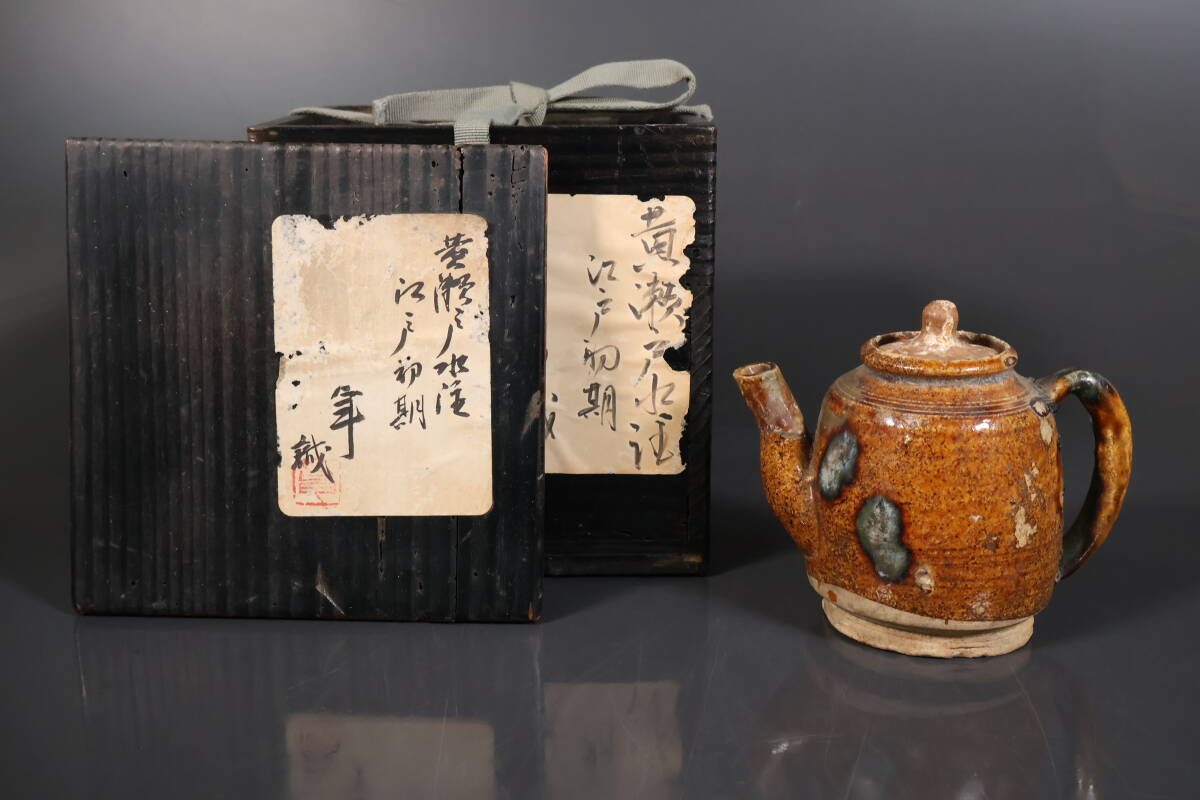 黄瀬戸水注
江戸初期
年
誠
黄瀬戸水注
江戸初期